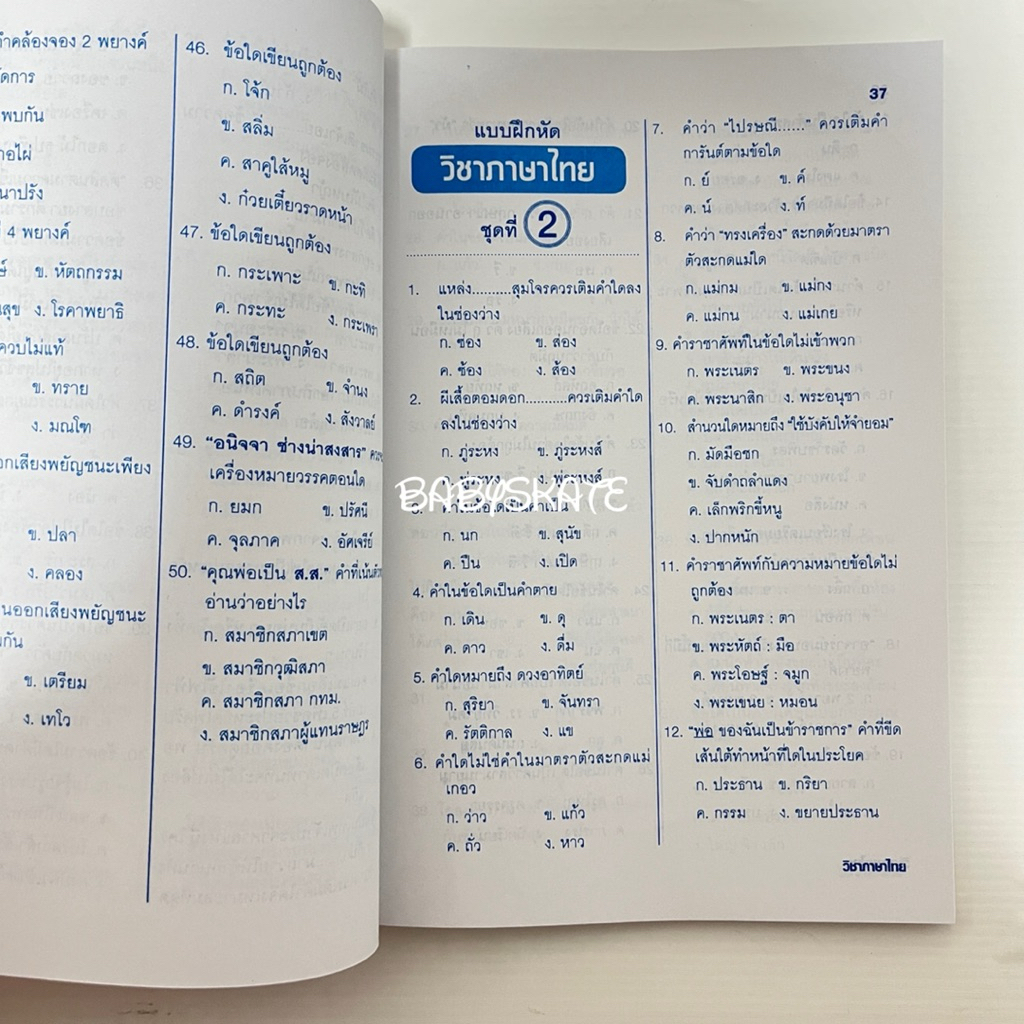 คำคล้องจอง 2 พยางค์
พบกัน
นาปรัง
4 พยางค์
ข. หัตถกรรม
ง. โรคาพยาธิ
ควบไม่แท้
ข. ทราย
ง. มณโฑ
ออกเสียงพยัญชนะเพียง
ข. ปลา
ง. คลอง
ออกเสียงพยัญชนะ
ข. เตรียม
ง. เทโว
46. ข้อใดเขียนถูกต้อง
ก. โจ้ก
ข. สลิ่ม
ค. สาคูใส้หมู
ง. ก๋วยเตี๋ยวราดหน้า
47. ข้อใดเขียนถูกต้อง
ก. กระเพาะ ข. กะทิ
ค. กระทะ ง. กระเพรา
48. ข้อใดเขียนถูกต้อง
ก. สถิต ข. จำนง
ค. ดำรงค์ ง. สังวาลย์
49. "อนิจจา ช่างน่าสงสาร"
เครื่องหมายวรรคตอนใด
ก. ยมก ข. ปรัศนี
ค. จุลภาค ง. อัศเจรีย์
50. "คุณพ่อเป็น ส.ส." คำที่เน้น
อ่านว่าอย่างไร
ก. สมาชิกสภาเขต
ข. สมาชิกวุฒิสภา
ค. สมาชิกสภา กทม.
ง. สมาชิกสภาผู้แทนราษฎร
37
แบบฝึกหัด
วิชาภาษาไทย
ชุดที่ 2
1. แหล่ง..........สุมโจรควรเติมคำใดลง
ในช่องว่าง
ก. ซ่อง ข. ส่อง
ค. ซ้อง ง. ส้อง
2. ผีเสื้อตอมดอก...........ควรเติมคำใด
ลงในช่องว่าง
ก. ภู่ระหง ข. ภู่ระหงส์
ค. พู่ระหง ง. พู่ระหงส์
3. คำในข้อใดเป็นคำเป็น
ก. นก ข. สุนัข
ค. ปืน ง. เปิด
4. คำในข้อใดเป็นคำตาย
ก. เดิน ข. ดุ
ค. ดาว ง. ดื่ม
5. คำใดหมายถึง ดวงอาทิตย์
ก. สุริยา ข. จันทรา
ค. รัตติกาล ง. แข
6. คำใดไม่ใช่คำในมาตราตัวสะกดแม่
เกอว
ก. ว่าว ข. แก้ว
ค. ถั่ว ง. หาว
7. คำว่า "ไปรษณี......" ควรเติมคำ
การันต์ตามข้อใด
ก. ย์ ข. ค์
ค. น์ ง. ท์
8. คำว่า "ทรงเครื่อง" สะกดด้วยมาตรา
ตัวสะกดแม่ใด
ก. แม่กม ข. แม่กง
ค. แม่กน ง. แม่เกย
9. คำราชาศัพท์ในข้อใดไม่เข้าพวก
ก. พระเนตร ข. พระขนง
ค. พระนาสิก ง. พระอนุชา
10. สำนวนใดหมายถึง "ใช้บังคับให้จำยอม"
ก. มัดมือชก
ข. จับดำถลำแดง
ค. เล็กพริกขี้หนู
ง. ปากหนัก
11. คำราชาศัพท์กับความหมายข้อใดไม่
ถูกต้อง
ก. พระเนตร : ตา
ข. พระหัตถ์ : มือ
ค. พระโอษฐ์ : จมูก
ง. พระเขนย : หมอน
12. "พ่อ ของฉันเป็นข้าราชการ" คำที่ขีด
เส้นใต้ทำหน้าที่ใดในประโยค
ก. ประธาน ข. กริยา
ค. กรรม ง. ขยายประธาน
วิชาภาษาไทย
BABYSKATE